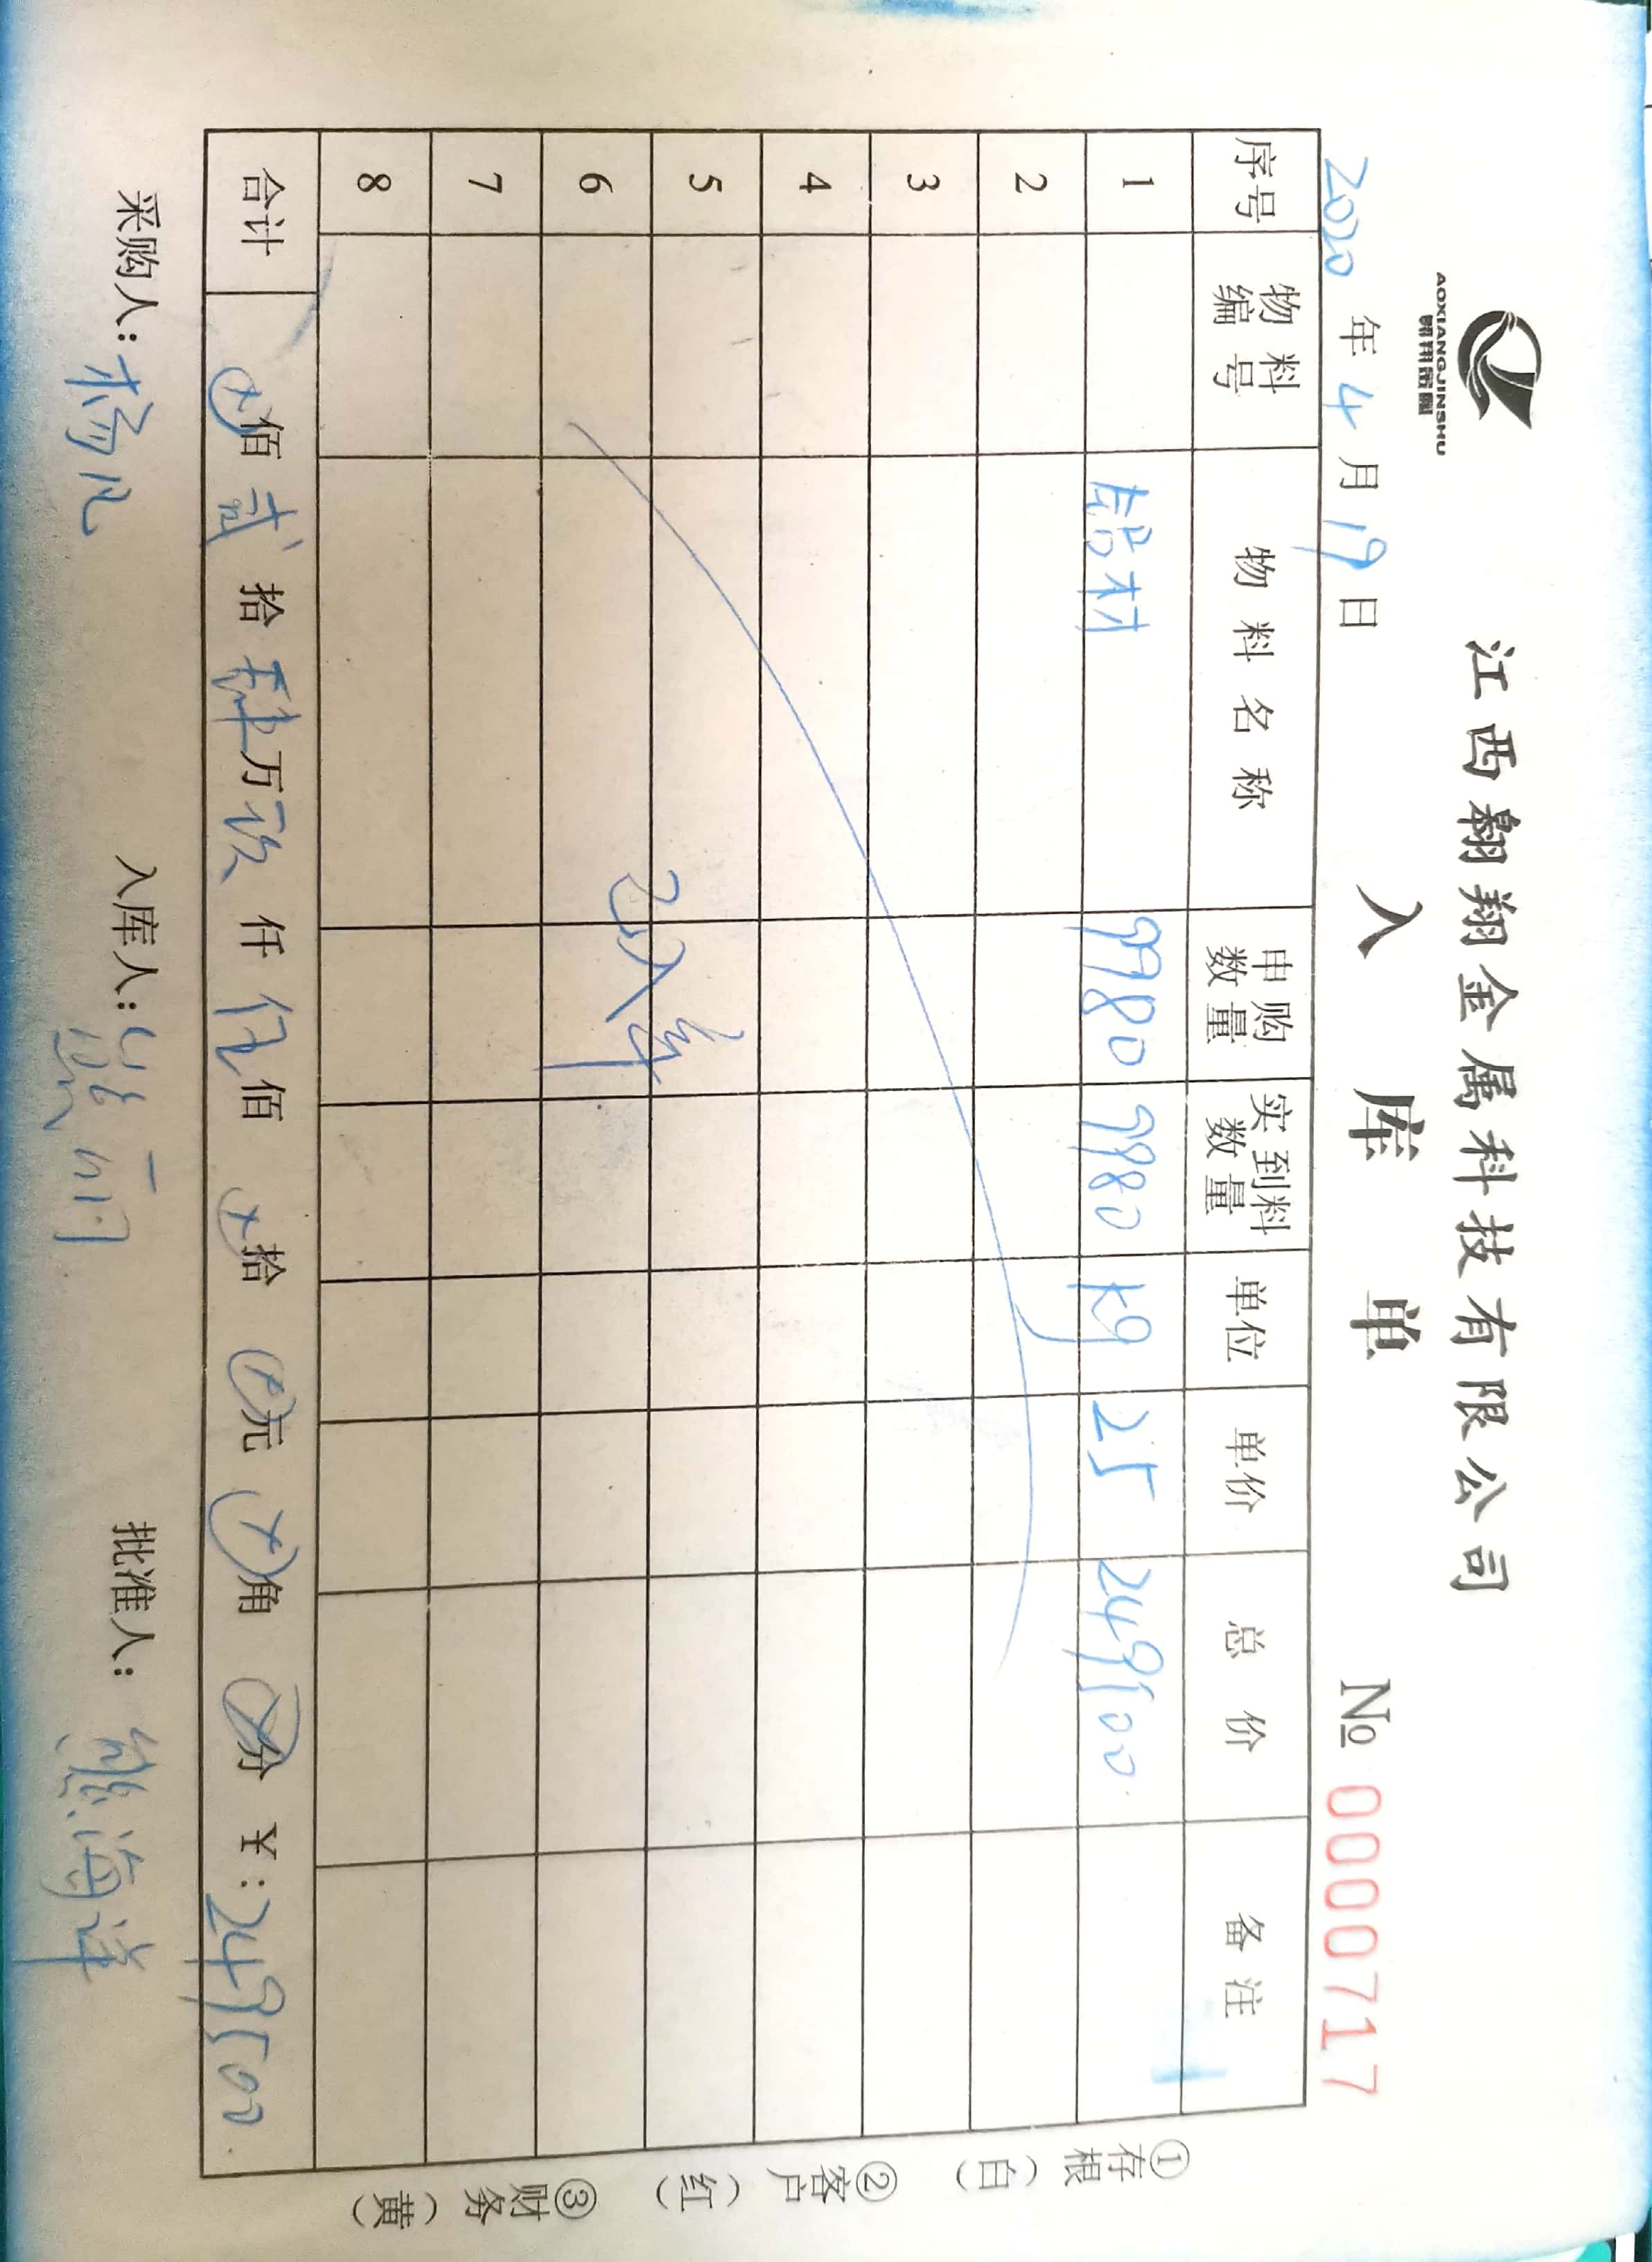 AOXIANGJINSHU
翱翔金属
江西翱翔金属科技有限公司
入库单
2020年4月19日 № 0000717
序号 物料编号 物料名称 申购数量 实到料数量 单位 单价 总价 备注
1 铝材 9980 9980 kg 25 249500
2
3
4
5
6 已入库
7
8
合计 ⊗佰贰拾肆万玖仟伍佰⊗拾⊗元⊗角⊗分 ¥:249500
采购人:杨凡 入库人: 批准人:熊海洋
①存根(白) ②客户(红) ③财务(黄)